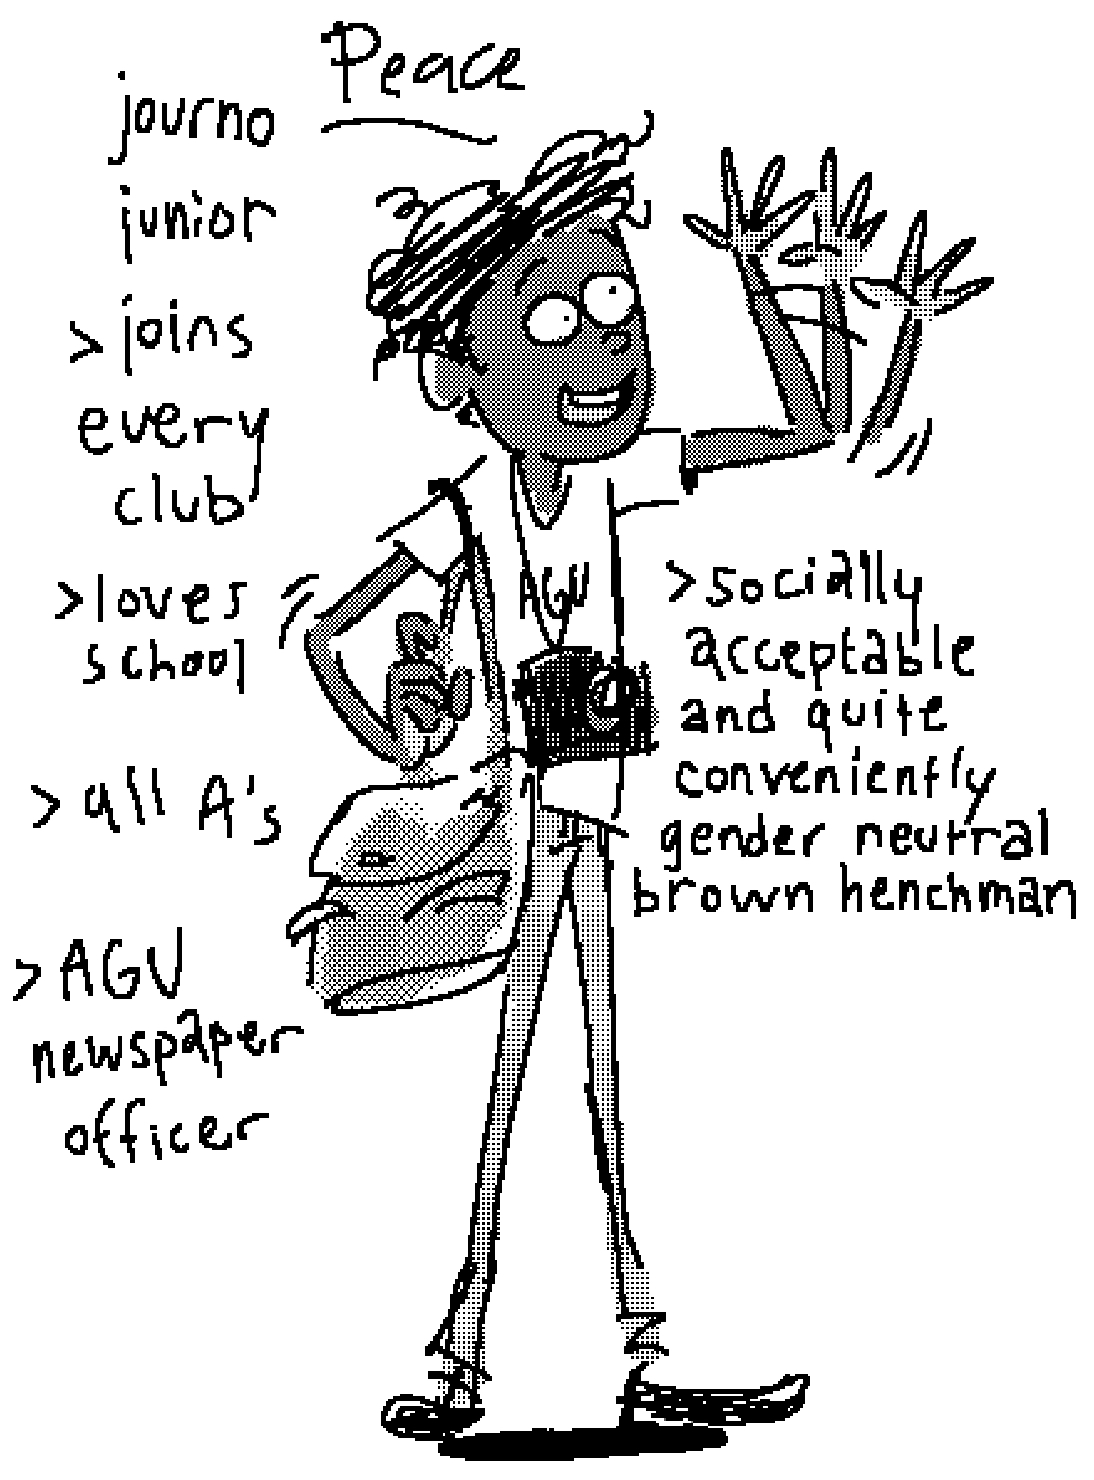 Peace
journo
junior
> joins
every
club
> loves
school
> all A's
> AGU
newspaper
officer
AGU
> socially
acceptable
and quite
conveniently
gender neutral
brown henchman